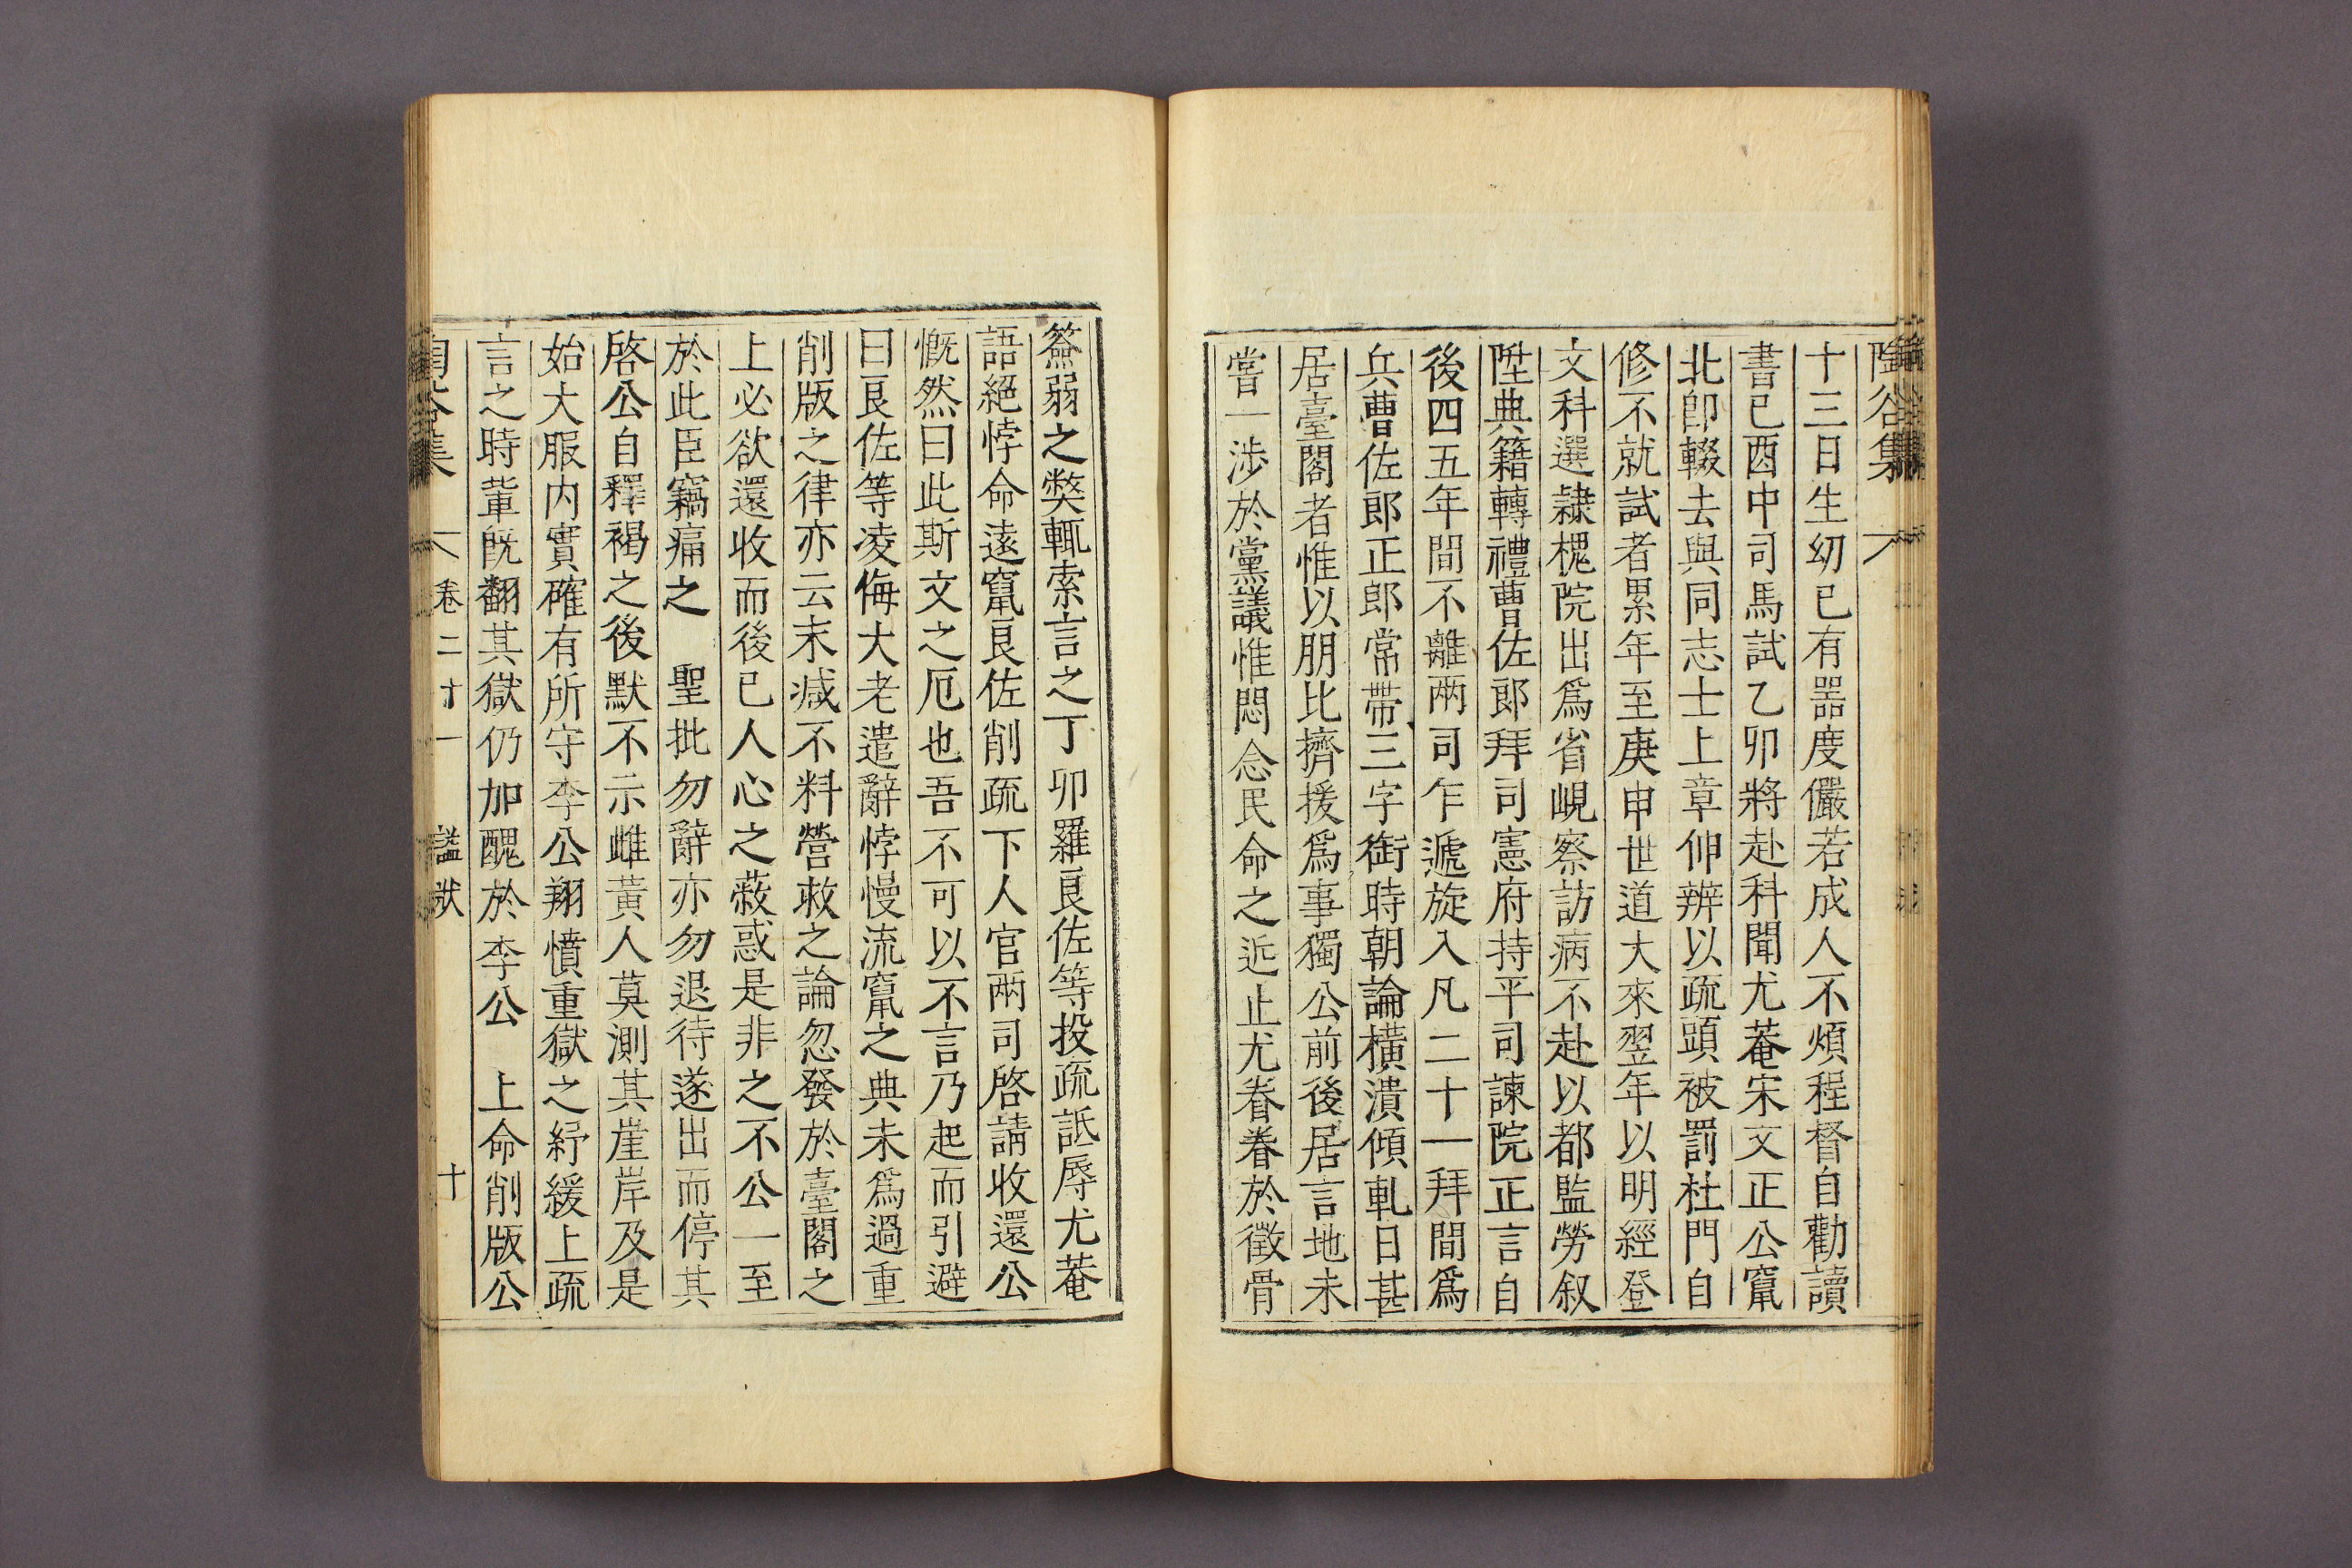 陶谷集
十三日生幼已有器度儼若成人不煩程督自勸讀
書己酉中司馬試乙卯將赴科聞尤菴宋文正公竄
北卽輟去與同志士上章伸辨以疏頭被罰杜門自
修不就試者累年至庚申世道大來翌年以明經登
文科選隷槐院出爲省峴察訪病不赴以都監勞叙
陞典籍轉禮曹佐郎拜司憲府持平司諫院正言自
後四五年間不離兩司乍遞旋入凡二十一拜間爲
兵曹佐郎正郎常帶三字銜時朝論橫潰傾軋日甚
居臺閣者惟以朋比擠援爲事獨公前後居言地未
嘗一涉於黨議惟悶念民命之近止尤眷眷於徵骨
簽弱之獘輒索言之丁卯羅良佐等投疏詆辱尤菴
語絕悖命遠竄良佐削疏下人官兩司啓請收還公
慨然曰此斯文之厄也吾不可以不言乃起而引避
曰良佐等凌侮大老遣辭悖慢流竄之典未爲過重
削版之律亦云末减不料營救之論忽發於臺閣之
上必欲還收而後已人心之蔽惑是非之不公一至
於此臣竊痛之 聖批勿辭亦勿退待遂出而停其
啓公自釋褐之後默不示雌黃人莫測其崖岸及是
始大服內實確有所守李公翔憤重獄之紓緩上疏
言之時軰旣翻其獄仍加醜於李公 上命削版公
陶谷集 卷二十一 諡狀 十